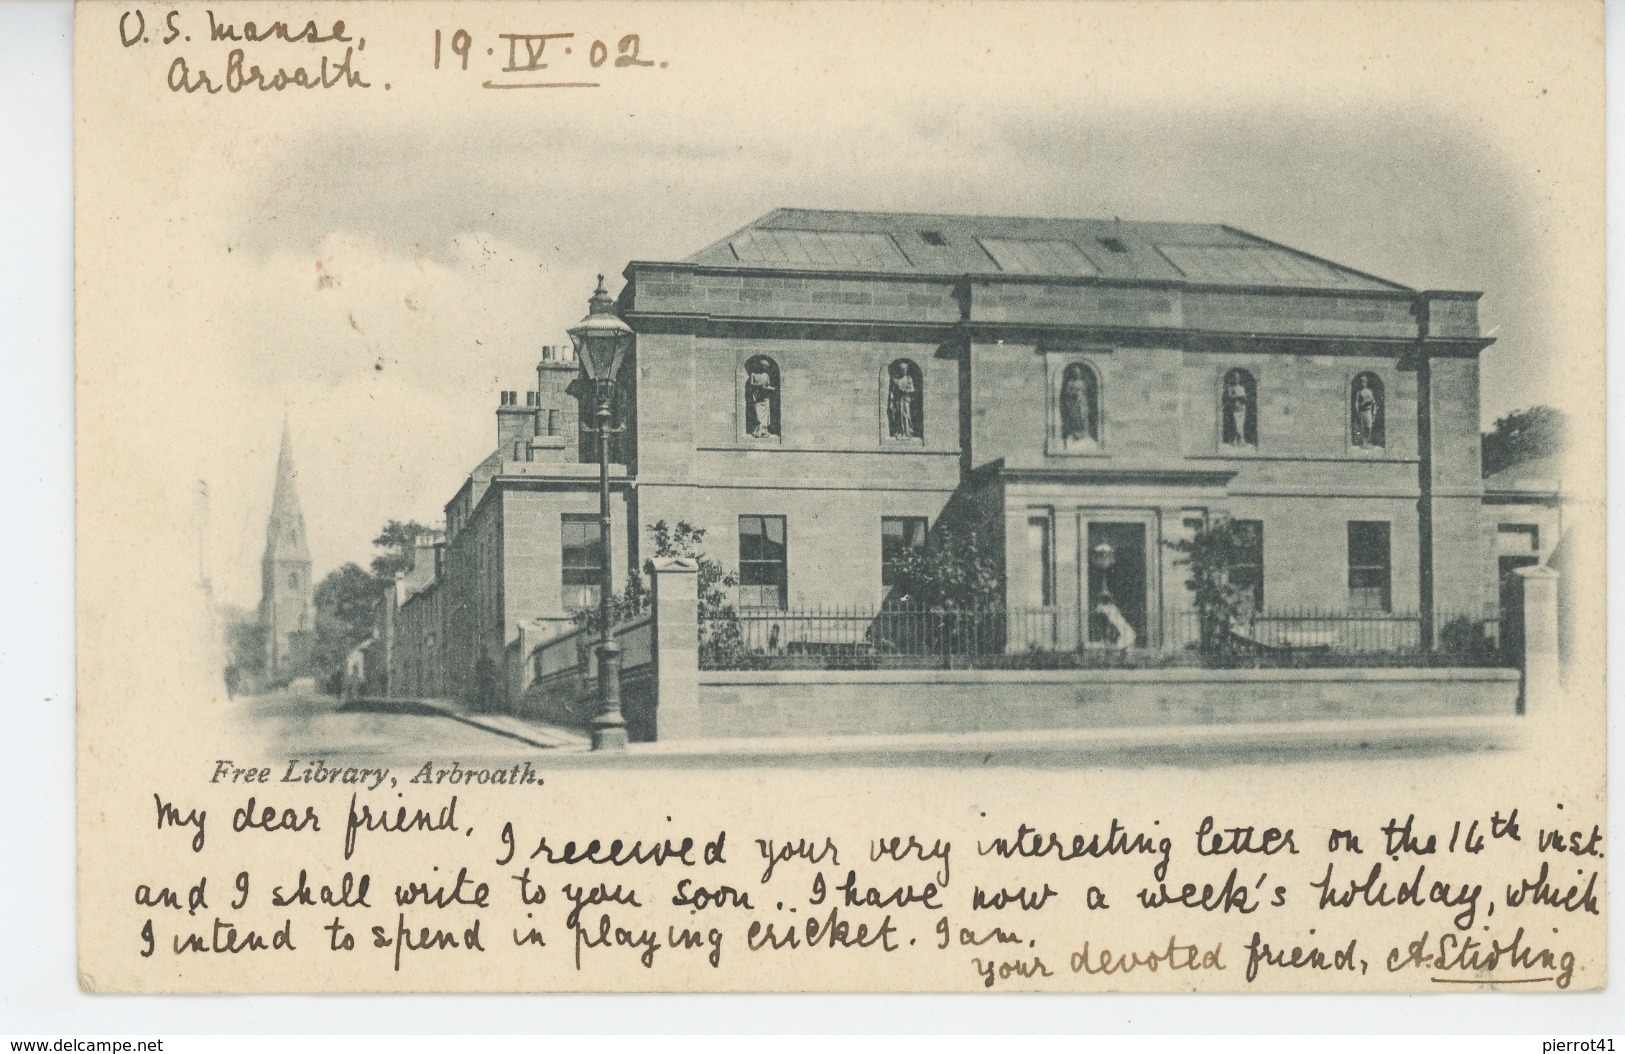 O. S. Manse,
Arbroath.
19·IV·02.
Free Library, Arbroath.
My dear friend,
I received your very interesting letter on the 16th inst.
and I shall write to you soon. I have now a week's holiday, which
I intend to spend in playing cricket. I am,
your devoted friend, A. Stirling.
www.delcampe.net
pierrot41